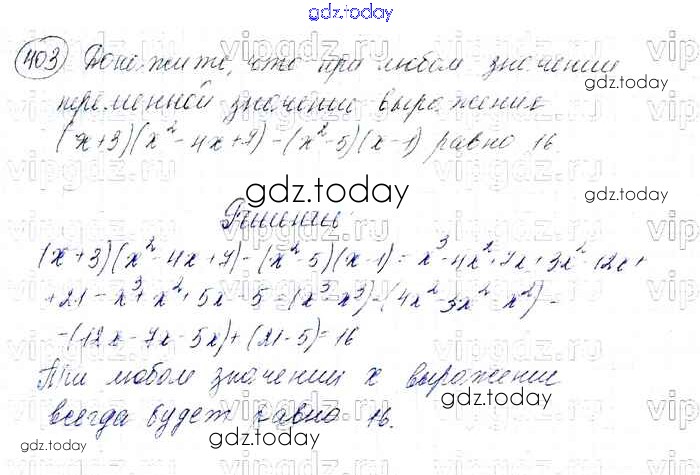 gdz.today
403 Докажите, что при любом значении
переменной значение выражения
(x+3)(x²-4x+7)-(x²-5)(x-1) равно 16
gdz.today
gdz.today
Решение
(x+3)(x²-4x+7)-(x²-5)(x-1)=x³-4x²+7x+3x²-12x+
+21-x³+x²+5x-5=(x³-x³)-(4x²-3x²-x²)-
-(12x-7x-5x)+(21-5)=16
При любом значении x выражение
всегда будет равно 16.
gdz.today
gdz.today
gdz.today
vipgdz.ru